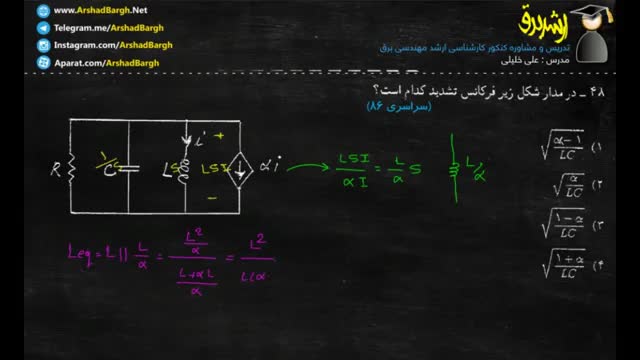 www.ArshadBargh.Net
Telegram.me/ArshadBargh
Instagram.com/ArshadBargh
Aparat.com/ArshadBargh
ارشد برق
تدریس و مشاوره کنکور کارشناسی ارشد مهندسی برق
مدرس : علی خلیلی
۴۸ ــ در مدار شکل زیر فرکانس تشدید کدام است؟
(سراسری ۸۶)
۱) √((α−۱)/LC)
۲) √(α/LC)
۳) √((۱−α)/LC)
۴) √((۱+α)/LC)
R 1/CS LS i + LSI − αi
LSI/αI = L/α S
L/α
Leq = L || L/α = (L²/α)/((L+αL)/α) = L²/L(α